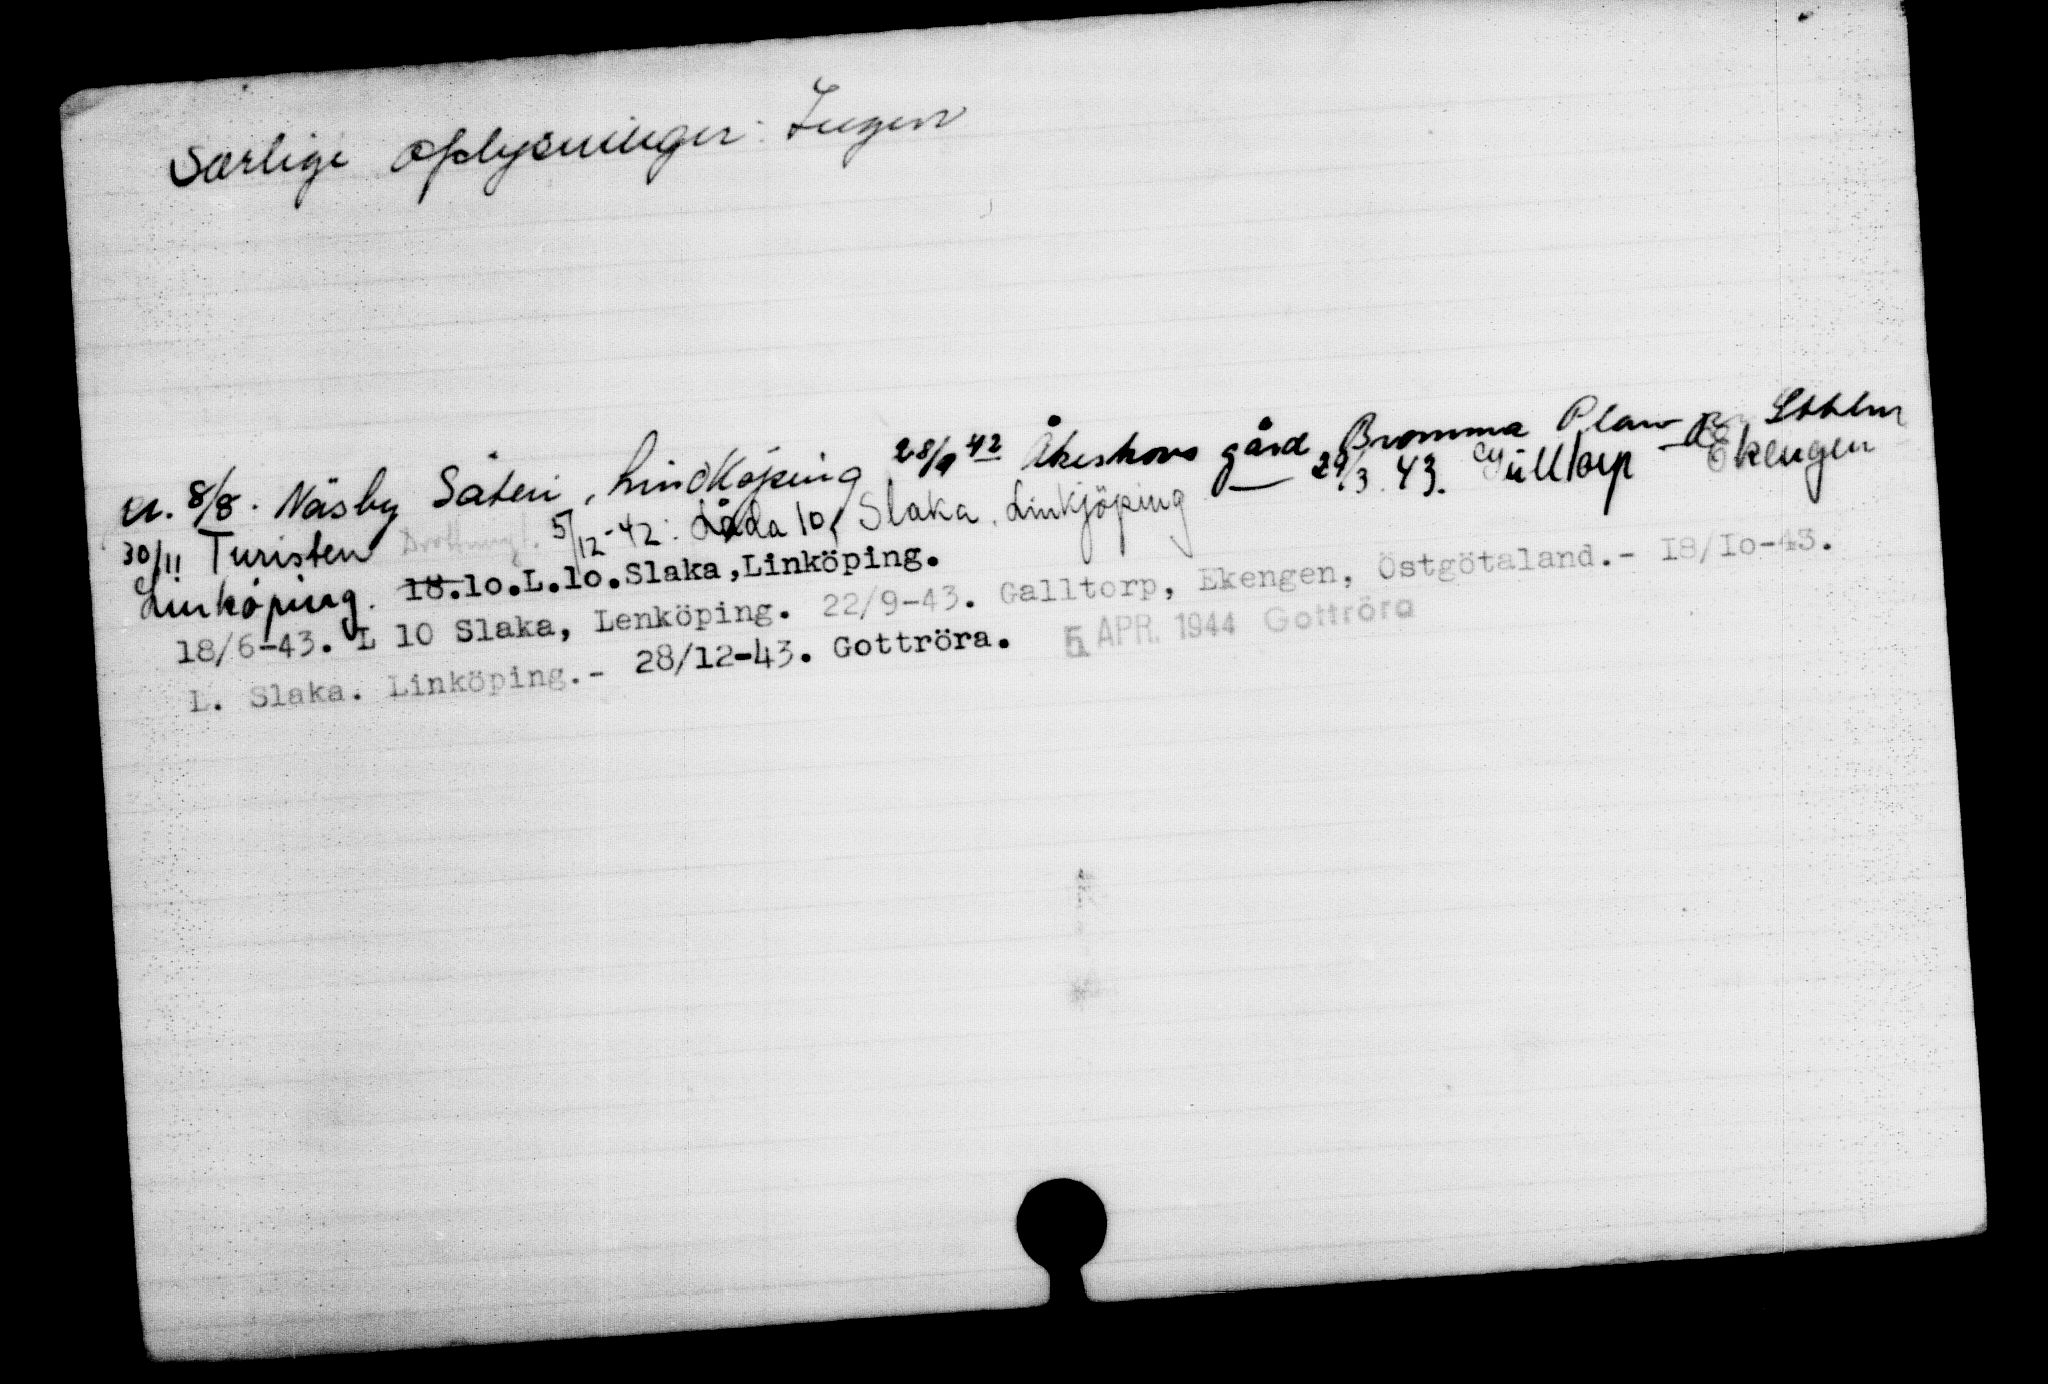 Særlige oplysninger: Ingen
er. 8/8. Näsby Säteri, Lindköping 28/9 42 Åkeshovs gård, Bromma Plan Sthlm
30/11 Turisten Drottningt. 5/12-42: Låda 10, Slaka, Linkjöping 29/3.43. Gülltorp Ekengen
Linköping. 18.10.L.10.Slaka,Linköping.
18/6-43. L 10 Slaka, Lenköping. 22/9-43. Galltorp, Ekengen, Östgötaland.- I8/Io-43.
L. Slaka. Linköping.- 28/12-43. Gottröra. 5 APR. 1944 Gottröra